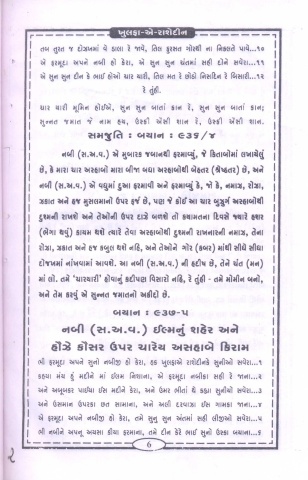 ખુલફા-એ-રાશેદીન
તબ તુરત જ દોઝખમેં વે ડાલા રે જાવે, તિલ ફુરસત ગોરથી ના નિકલતે પાવે...૧૦
એ ફરમૂદા અપને નબી હો કેરા, એ સુન સુન ચંતમાં સહી દીને સવેરા...૧૧
એ સુન સુન દીન કે ભાઈ હોઓ ચાર યારી, તિલ મત રે છોડો નિસદિન રે વિસારી...૧૨
રે તુંહી.
ચાર યારી મૂમિન હોઈએ, સુન સુન બાતાં કાન રે, સુન સુન બાતાં કાન;
સુન્નત જમાત જે નામ હય, ઉસ્કી એસી શાન રે, ઉસ્કી એસી શાન.
સમજુતિ : બયાન : ૯૩૬/૪
નબી (સ.અ.વ.) એ મુબારક જબાનથી ફરમાવ્યું, જે કિતાબોમાં લખાયેલું
છે, કે મારા ચાર અસ્હાબો મારા બીજા બધા અસ્હાબોથી બેહતર (શ્રેષ્ઠતર) છે, અને
નબી (સ.અ.વ.) એ વધુમાં દુઆ ફરમાવી અને ફરમાવ્યું કે, જો કે, નમાઝ, રોઝા,
ઝકાત અને હજ મુસલમાનો ઉપર ફર્જ છે, પણ જે કોઈ આ ચાર બુઝુર્ગ અસ્હાબોથી
દુશ્મની રાખશે અને તેઓની ઉપર દાઝે બળશે તો કયામતના દિવસે જ્યારે હશ્ર
(ભેગા થવું) કાયમ થશે ત્યારે તેવા અસ્હાબોથી દુશ્મની રાખનારની નમાઝ, તેના
રોઝા, ઝકાત અને હજ કબુલ થશે નહિ, અને તેઓને ગોર (કબર) માંથી સીધે સીધા
દોજખમાં નાંખવામાં આવશે. આ નબી (સ.અ.વ.) ની હદીષ છે, તેને ચંત (મન)
માં લો. તમે 'ચારયારી' હોવાનું કદીપણ વિસારો નહિ, રે તુંહી - તમે મોમીન બનો,
અને તેમ કરવું એ સુન્નત જમાતનો અકીદો છે.
બયાન : ૯૩૭-૫
નબી (સ.અ.વ.) ઈલ્મનું શહેર અને
હૌઝે કૌસર ઉપર ચારેય અસહાબે કિરામ
ભી ફરમૂદા અપને સુનો નબીજી હો કેરા, હક ખુલફાએ રાશેદીનકે સુનીઓ સવેરા...૧
કહવા મંય હું મદીને માં ઈલ્મ નિશાના, એ ફરમૂદા નબીકા સહી રે જાના...૨
અને અબૂબકર પાઈયા ઈસ મદીને કેરા, અને ઉમર ભીતાં થે કહ્યા સુનીયો સવેરા...૩
અને ઉસમાન ઉપરકા છત સામાના, અને અલી દરવાઝા ઈસ ગામકા જાના...૪
એ ફરમૂદા અપને નબીજી હો કેરા, તમે સુનુ સુન અંતમાં સહી લીજીઓ સવેરા...૫
ભી નબીને અપનૂ અયસા કીયા ફરમાના, તમે દીન કેરે ભાઈ સુનો ઉસ્કા બયાના...૬
6